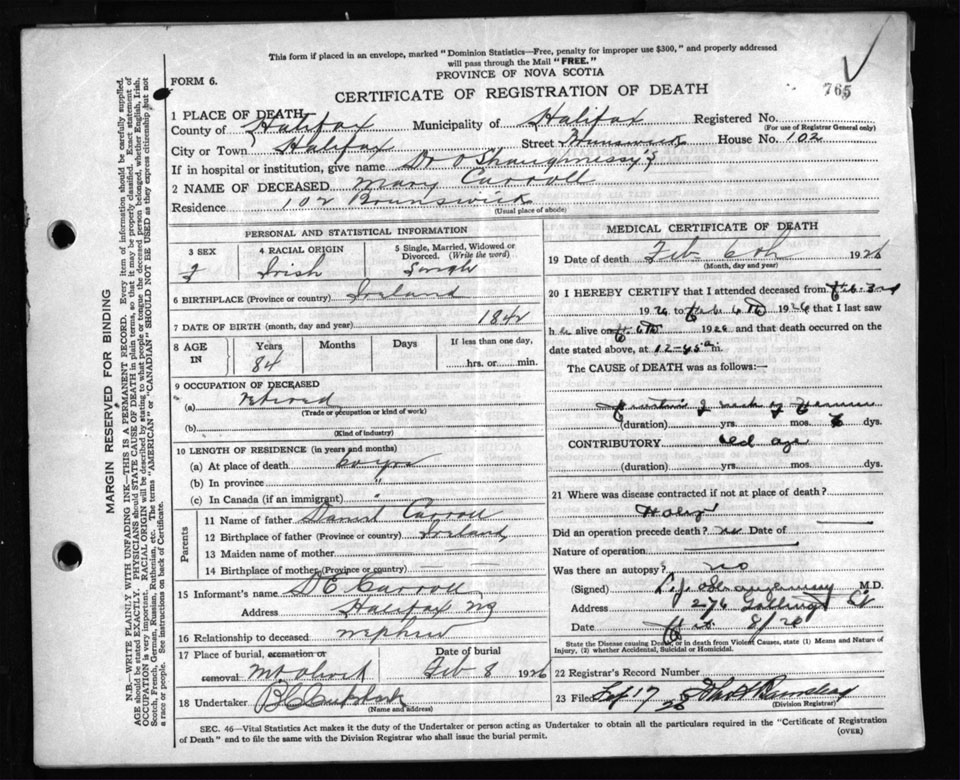 This form if placed in an envelope, marked "Dominion Statistics—Free, penalty for improper use $300," and properly addressed
will pass through the Mail "FREE."
FORM 6.
PROVINCE OF NOVA SCOTIA
765
CERTIFICATE OF REGISTRATION OF DEATH
1 PLACE OF DEATH
County of Halifax Municipality of Halifax Registered No.
(For use of Registrar General only)
City or Town Halifax Street Brunswick House No. 102
If in hospital or institution, give name Dr O'Shaughnessy's
2 NAME OF DECEASED Mary Carroll
Residence 102 Brunswick
(Usual place of abode)
PERSONAL AND STATISTICAL INFORMATION
3 SEX 4 RACIAL ORIGIN 5 Single, Married, Widowed or Divorced. (Write the word)
F Irish Single
6 BIRTHPLACE (Province or country) Ireland
7 DATE OF BIRTH (month, day and year) 1842
8 AGE IN Years Months Days If less than one day,
84 hrs. or min.
9 OCCUPATION OF DECEASED
(a) retired
(Trade or occupation or kind of work)
(b)
(Kind of industry)
10 LENGTH OF RESIDENCE (in years and months)
(a) At place of death 60 yrs
(b) In province "
(c) In Canada (if an immigrant)
Parents
11 Name of father Daniel Carroll
12 Birthplace of father (Province or country) Ireland
13 Maiden name of mother
14 Birthplace of mother (Province or country)
15 Informant's name D E Carroll
Address Halifax NS
16 Relationship to deceased nephew
17 Place of burial, cremation or removal Mt Olivet Date of burial Feb 8 1926
18 Undertaker
(Name and address)
MEDICAL CERTIFICATE OF DEATH
19 Date of death Feb 6th 1926
(Month, day and year)
20 I HEREBY CERTIFY that I attended deceased from Feb 3rd
1926 to Feb 6th 1926 that I last saw
her alive on Feb 6th 1926 and that death occurred on the
date stated above, at 12-45 a m.
The CAUSE of DEATH was as follows:—
neck of
(duration) yrs. mos. dys.
CONTRIBUTORY old age
(duration) yrs. mos. dys.
21 Where was disease contracted if not at place of death?
Did an operation precede death? no Date of
Nature of operation
Was there an autopsy? no
(Signed) M.D.
Address 276 St
Date 8/26
State the Disease causing Death, or in death from Violent Causes, state (1) Means and Nature of
Injury, (2) whether Accidental, Suicidal or Homicidal.
22 Registrar's Record Number
23 Filed 17 26
(Division Registrar)
SEC. 46—Vital Statistics Act makes it the duty of the Undertaker or person acting as Undertaker to obtain all the particulars required in the "Certificate of Registration
of Death" and to file the same with the Division Registrar who shall issue the burial permit.
(OVER)
MARGIN RESERVED FOR BINDING
N.B.—WRITE PLAINLY WITH UNFADING INK—THIS IS A PERMANENT RECORD. Every item of information should be carefully supplied.
AGE should be stated EXACTLY. PHYSICIANS should STATE CAUSE OF DEATH in plain terms, so that it may be properly classified. Exact statement of
OCCUPATION is very important. RACIAL ORIGIN will be described by stating to what people or tongue the deceased person belonged, whether English, Irish,
Scotch, French, German, Russian, Ruthenian, etc. The terms "AMERICAN" or "CANADIAN" SHOULD NOT BE USED as they express citizenship but not
a race or people. See instructions on back of Certificate.